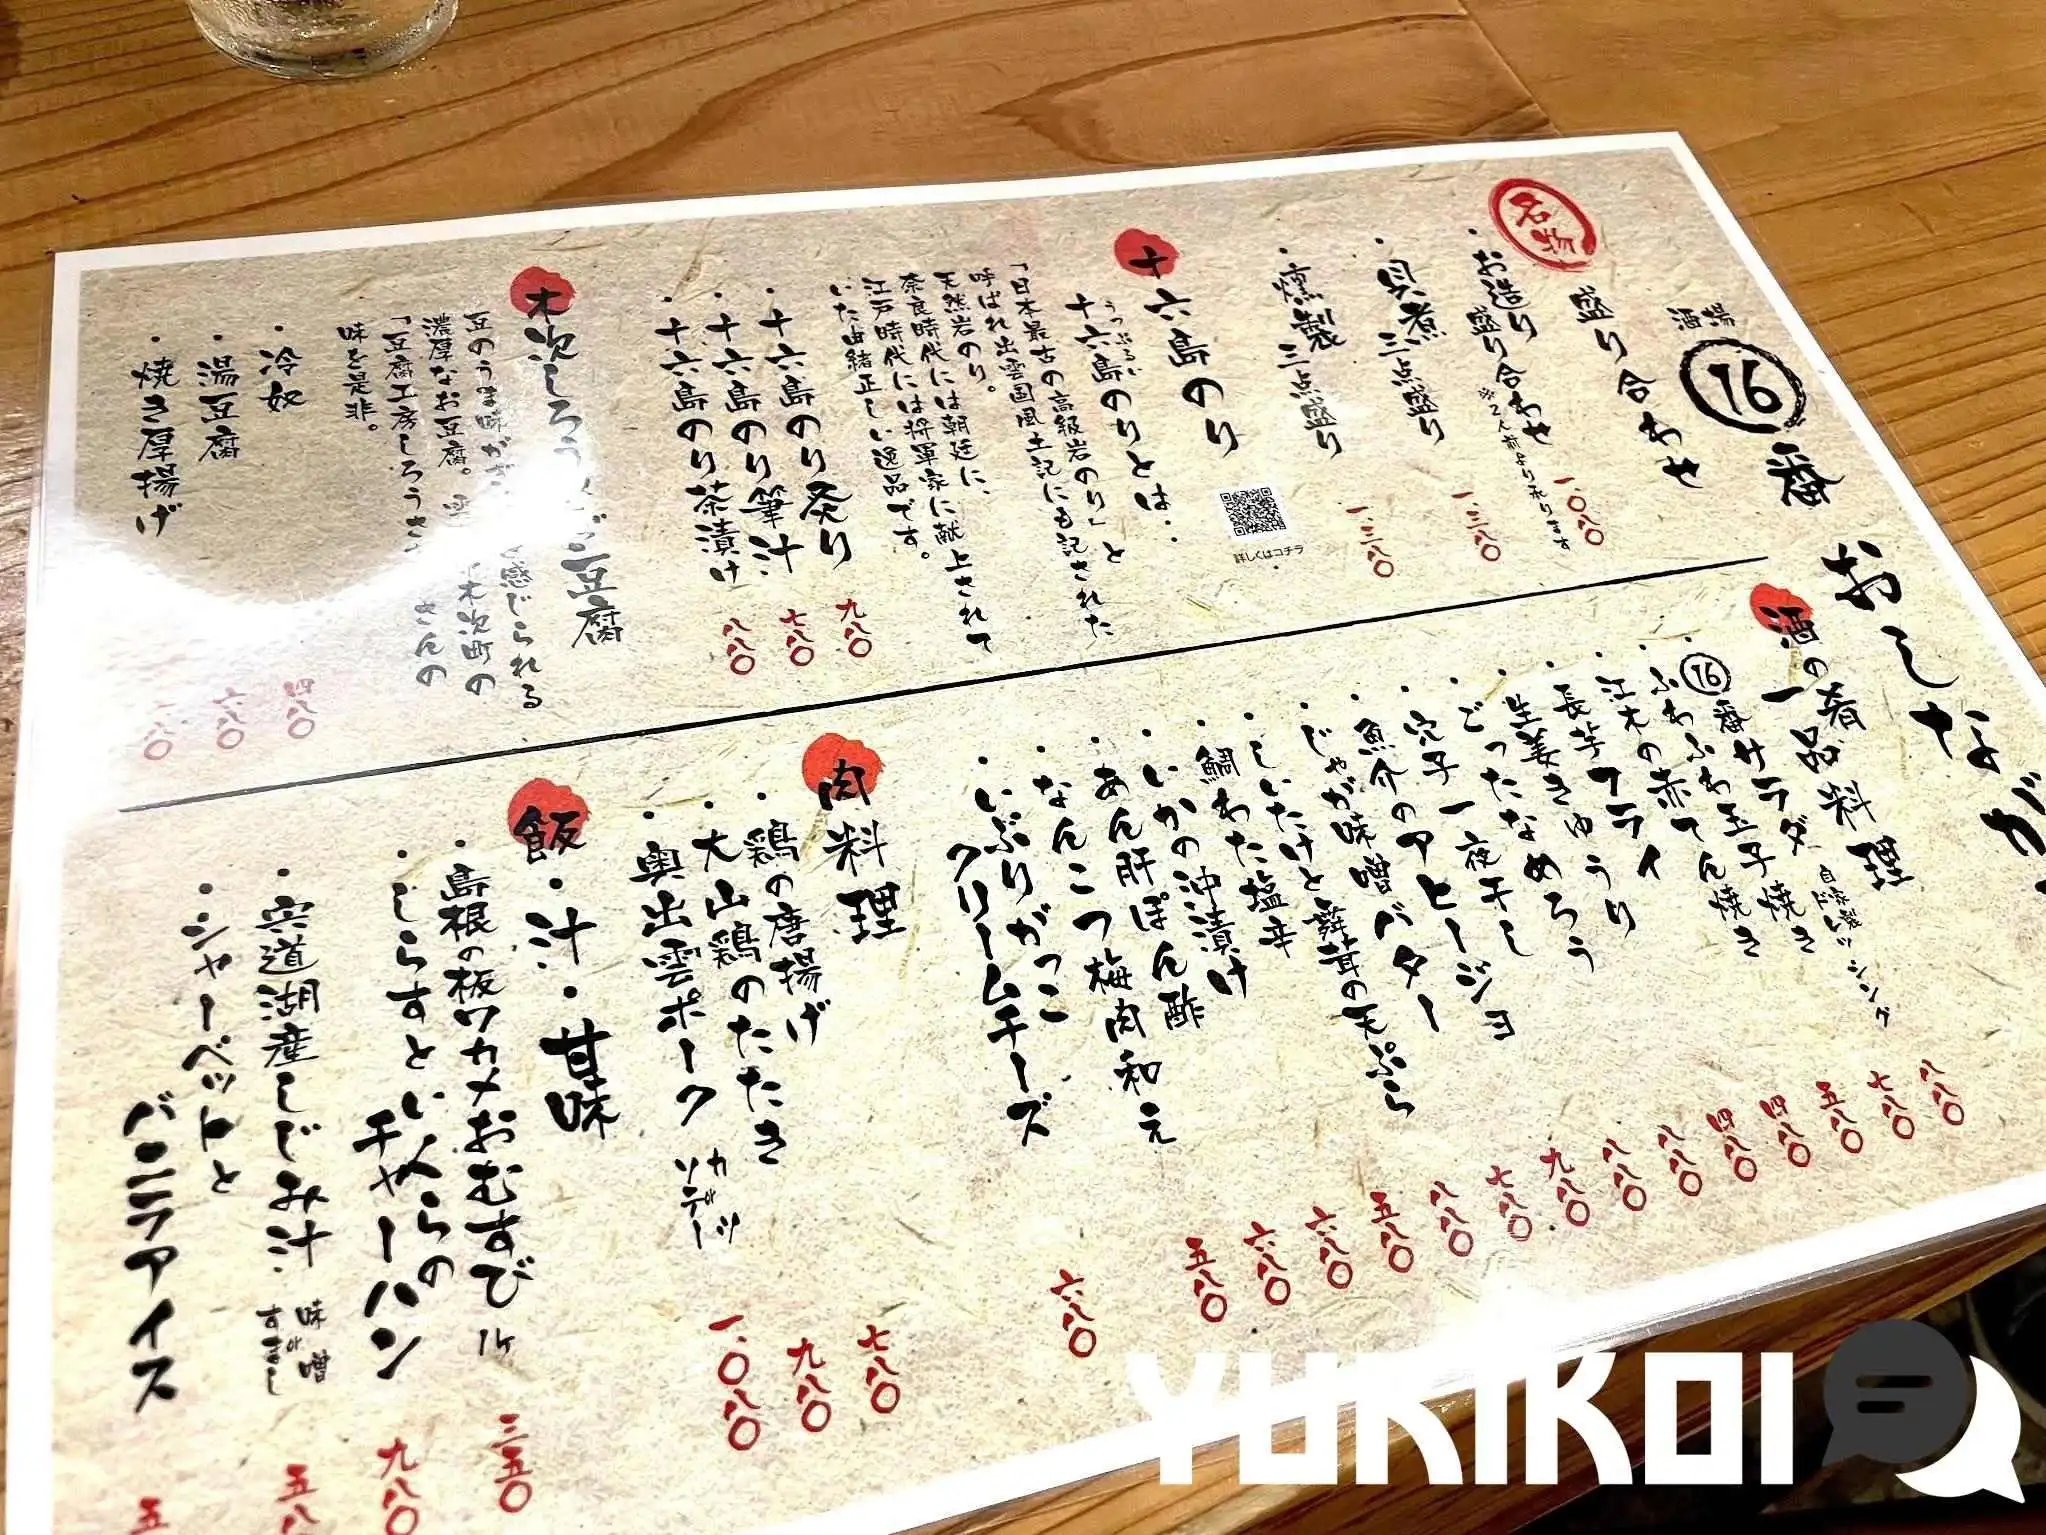 酒場
16番
おしながき
名物
盛り合わせ
・お造り盛り合わせ
※2人前より承ります
一、〇八〇
・貝煮 三点盛り
一、三八〇
・燻製 三点盛り
一、三八〇
詳しくはコチラ
十六島のり
十六島のりとは‥
うっぷるい
「日本最古の高級岩のり」と
呼ばれ出雲国風土記にも記された
天然岩のり。
奈良時代には朝廷に、
江戸時代には将軍家に献上されて
いた由緒正しい逸品です。
・十六島のり炙り
九八〇
・十六島のり箸汁
七八〇
・十六島のり茶漬け
八八〇
木次しろう 豆腐
豆のうま味が 感じられる
濃厚なお豆腐。 木次町の
「豆腐工房しろうさ さんの
味を是非。
・冷奴
四八〇
・湯豆腐
六八〇
・焼き厚揚げ
酒の肴
一品料理
・16番サラダ 自家製ドレッシング
八八〇
・ふわふわ玉子焼き
七八〇
・江木の赤てん焼き
五八〇
・長芋フライ
四八〇
・生姜きゅうり
四八〇
・ごったなめろう
八八〇
・穴子一夜干し
八八〇
・魚介のアヒージョ
九八〇
・じゃが味噌バター
七八〇
・しいたけと舞茸の天ぷら
八八〇
・鯛わた塩辛
五八〇
・いかの沖漬け
六八〇
・あん肝ぽん酢
六八〇
・なんこつ梅肉和え
五八〇
・いぶりがっこ
クリームチーズ
六八〇
肉料理
・鶏の唐揚げ
七八〇
・大山鶏のたたき
九八〇
・奥出雲ポーク カツorソテー
一、〇八〇
飯・汁・甘味
・島根の板ワカメおむすび 1ケ
三五〇
・しらすといくらの
チャーハン
九八〇
・宍道湖産しじみ汁 味噌orすまし
五八
・シャーベットと
バニラアイス
五
YURIKOI